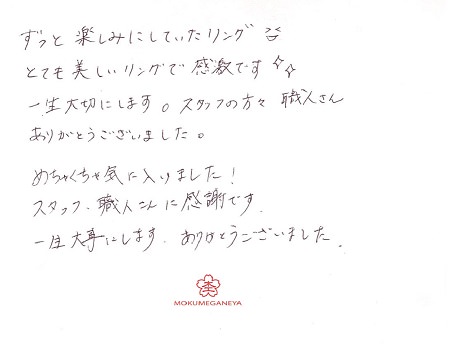 ずっと楽しみにしていたリング
とても美しいリングで感激です
一生大切にします。スタッフの方々 職人さん
ありがとうございました。
めちゃくちゃ気に入りました!
スタッフ、職人さんに感謝です.
一生大事にします. ありがとうございました.
杢
MOKUMEGANEYA